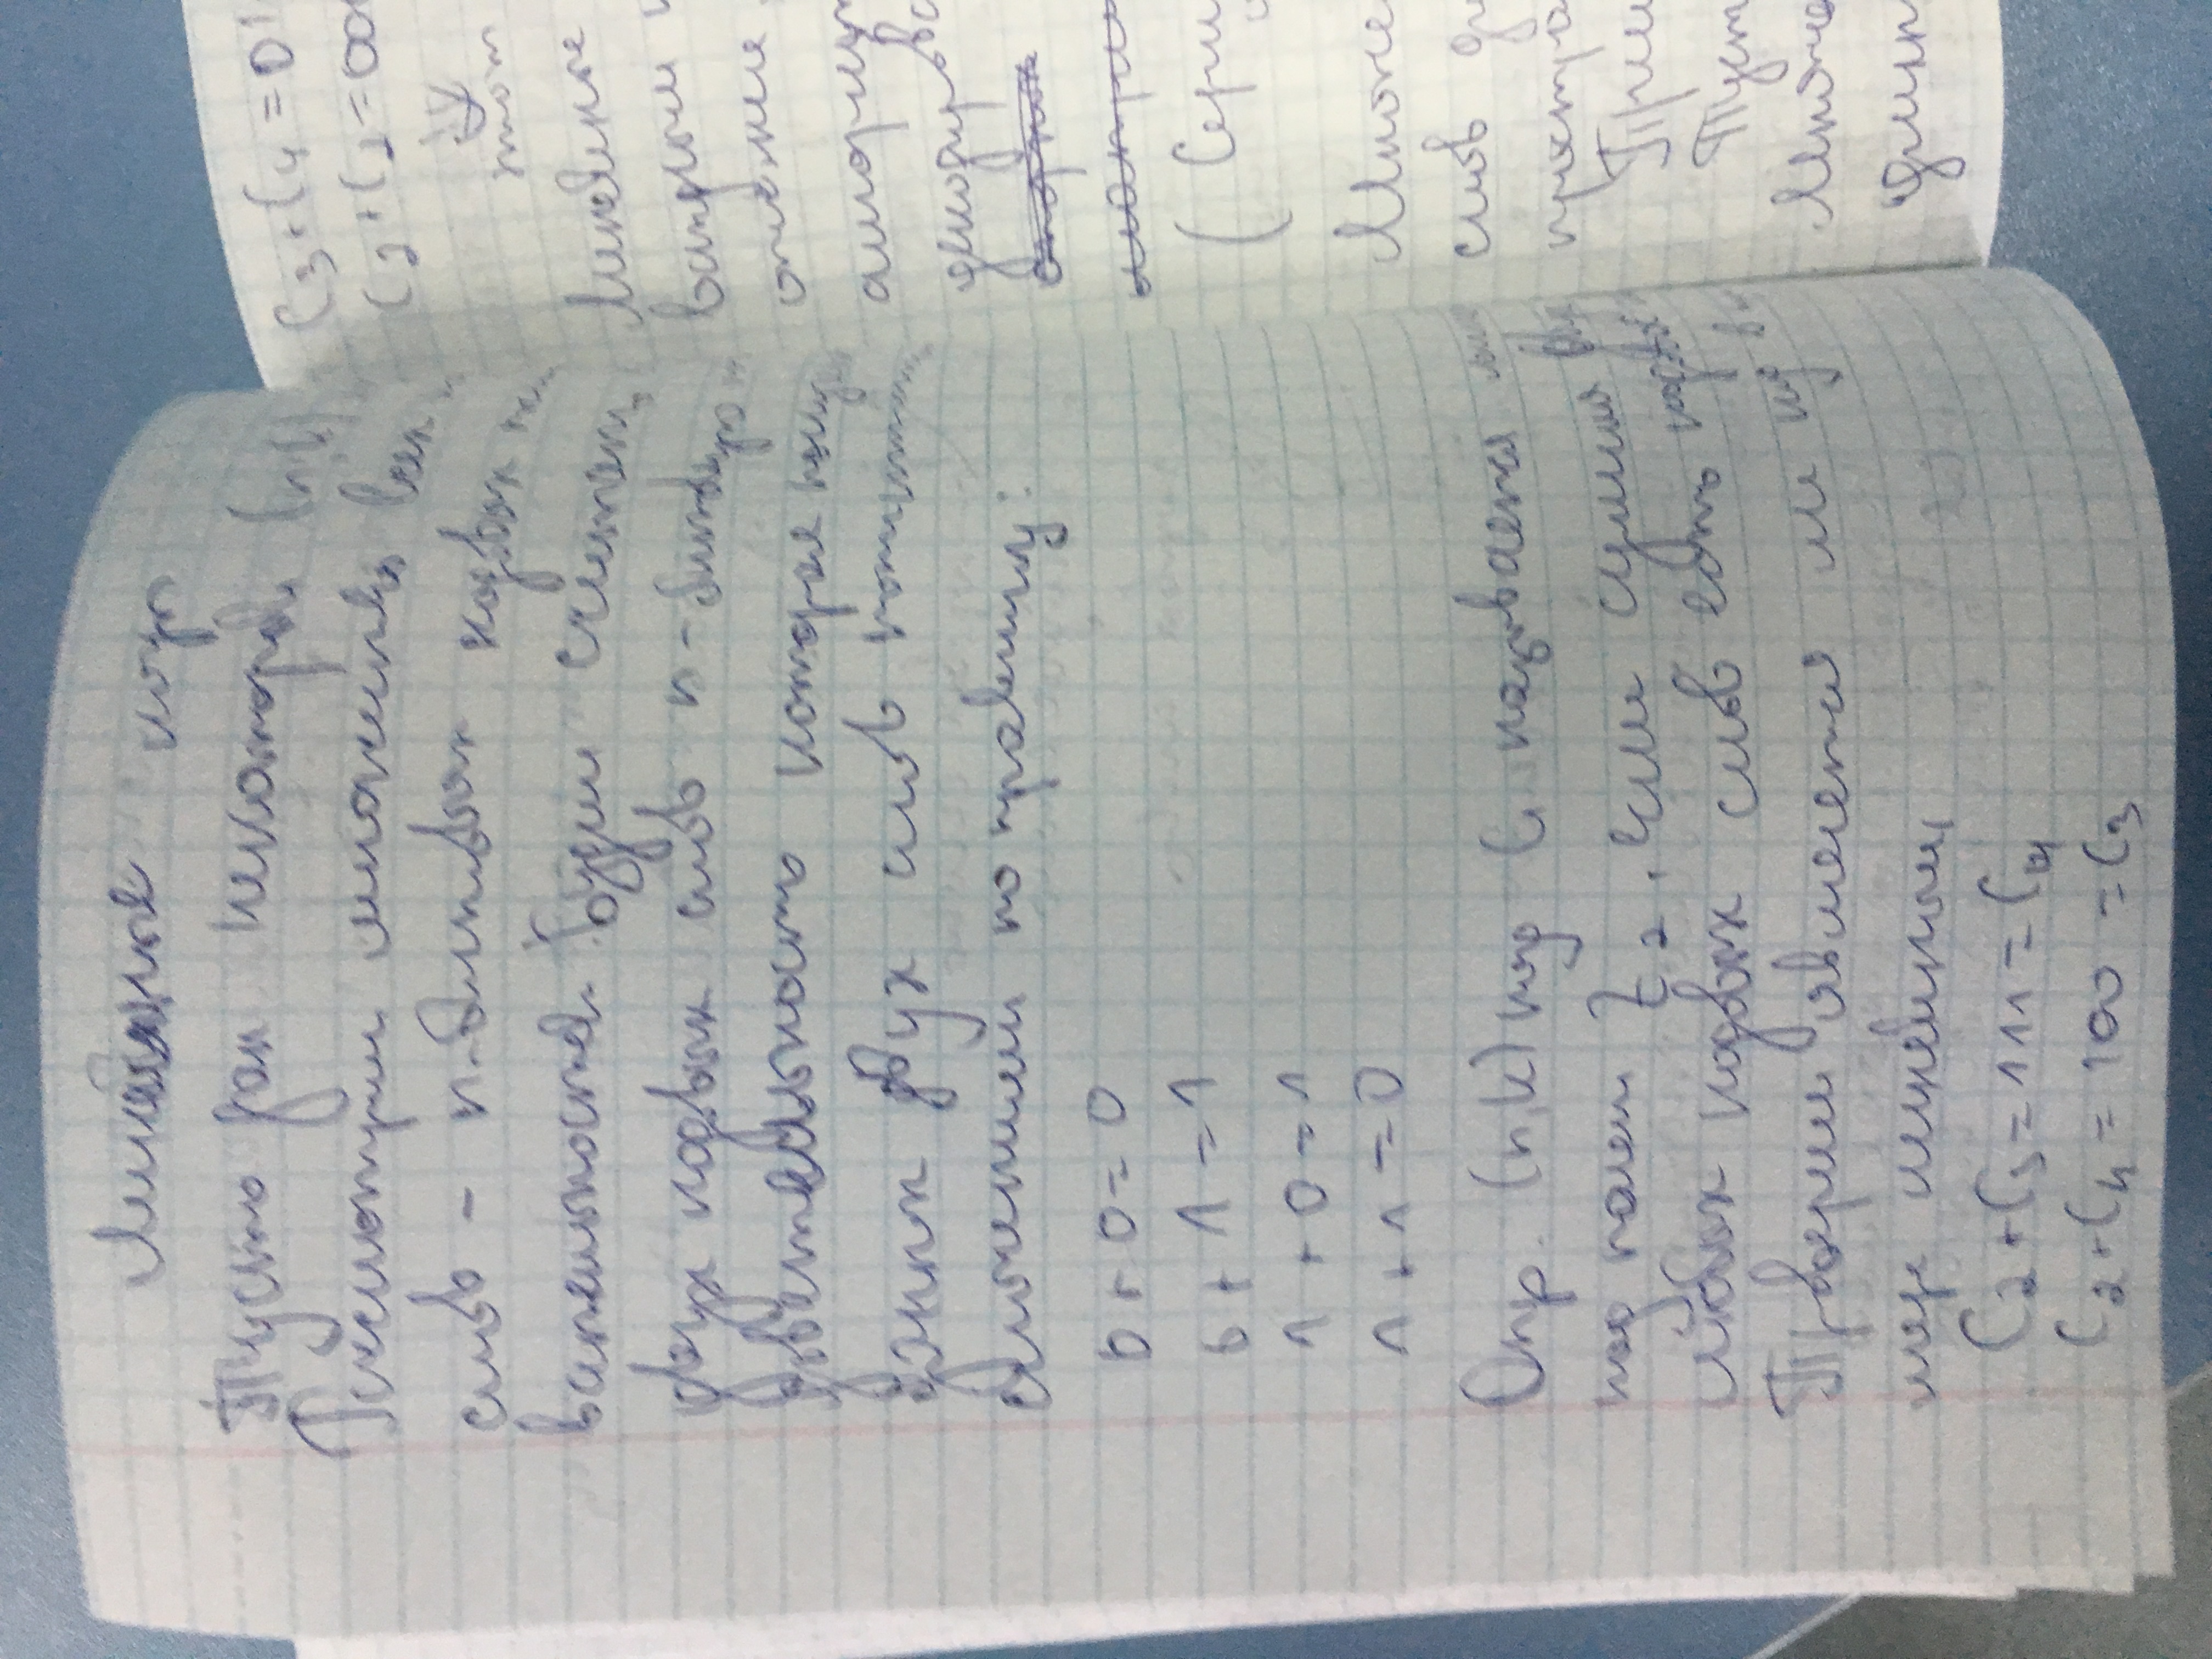 Линейные коды
Пусть дан некоторый (n,k)
Рассмотрим множество всех
слов - n-битовых кодовых
вательностей. Будем считать
двух кодовых слов n-битовую
довательность которая
данных двух слов
сложением по правилу:
0 + 0 = 0
0 + 1 = 1
1 + 0 = 1
1 + 1 = 0
Опр. (n,k) код C называется
над полем Z2, если сумма
любых кодовых слов есть
Проверим является ли код в
линейным
C2+C3=111=C4
C2+C4=100=C3
C3+C4=01
C2+C2=000
⇓
этот
Линейные
важным
алгоритм
декодирова
(Сери
Множе
слов дл
простра
Прим
Пуст
Множе
длин